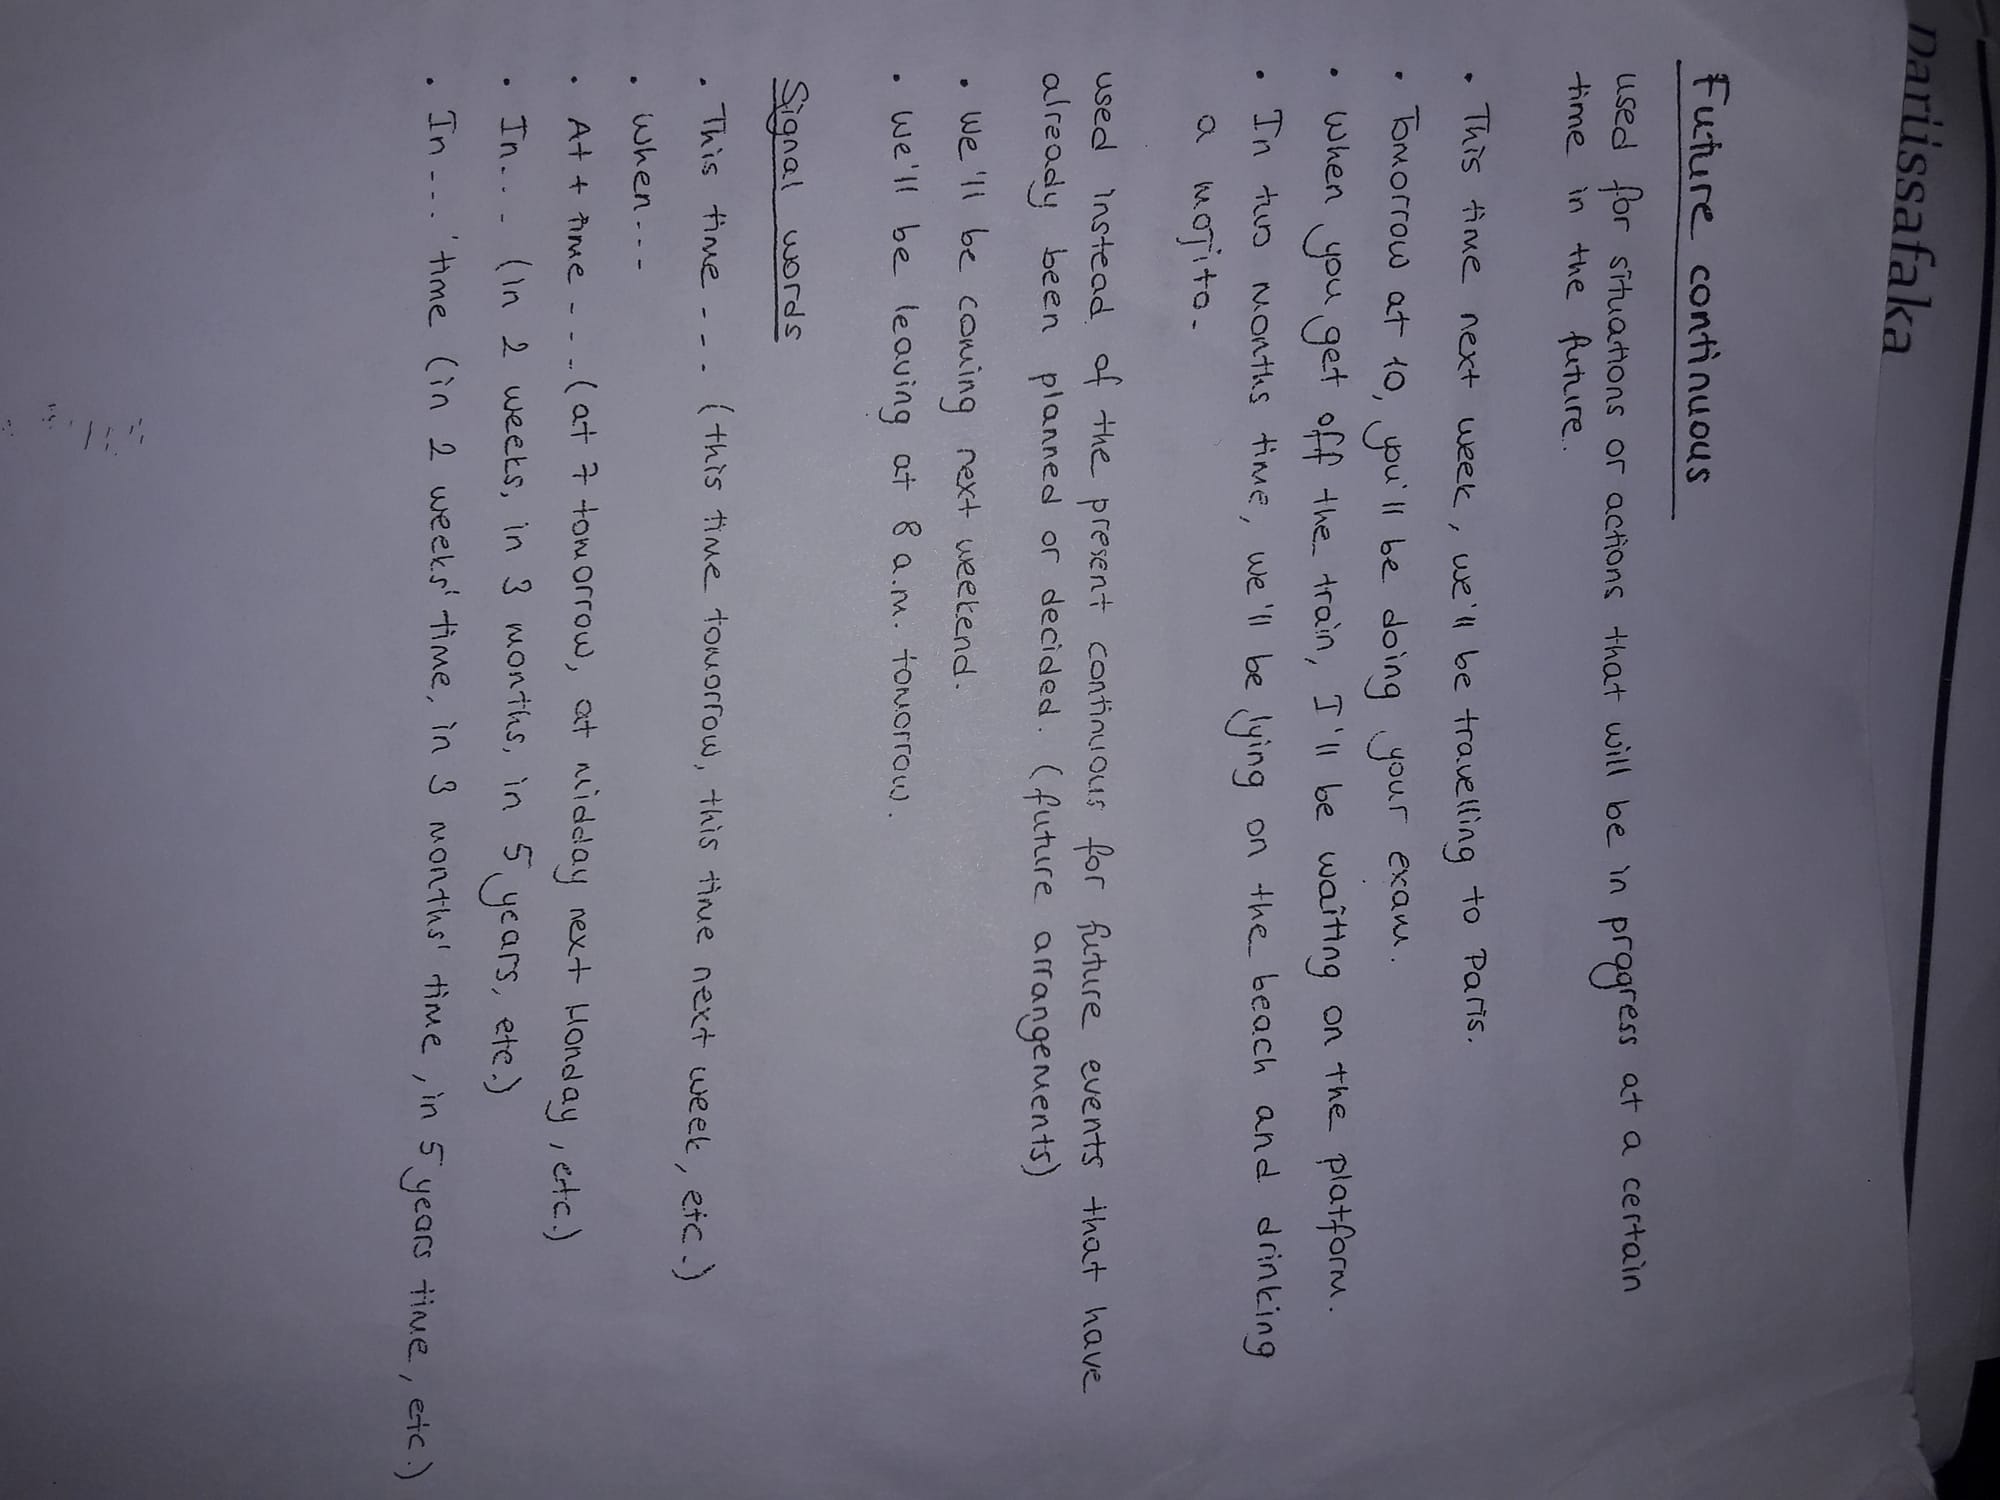 Dariissafaka
Future continuous
used for situations or actions that will be in progress at a certain
time in the future.
• This time next week, we'll be travelling to Paris.
• Tomorrow at 10, you'll be doing your exam.
• When you get off the train, I'll be waiting on the platform.
• In two months time, we'll be lying on the beach and drinking
a mojito.
used instead of the present continuous for future events that have
already been planned or decided. (future arrangements)
• We'll be coming next weekend.
• We'll be leaving at 8 a.m. tomorrow.
Signal words
• This time - - - (this time tomorrow, this time next week, etc.)
• When - - -
• At + time - - - (at 7 tomorrow, at midday next Monday, etc.)
• In - - - (in 2 weeks, in 3 months, in 5 years, etc.)
• In - - -' time (in 2 weeks' time, in 3 months' time, in 5 years time, etc.)